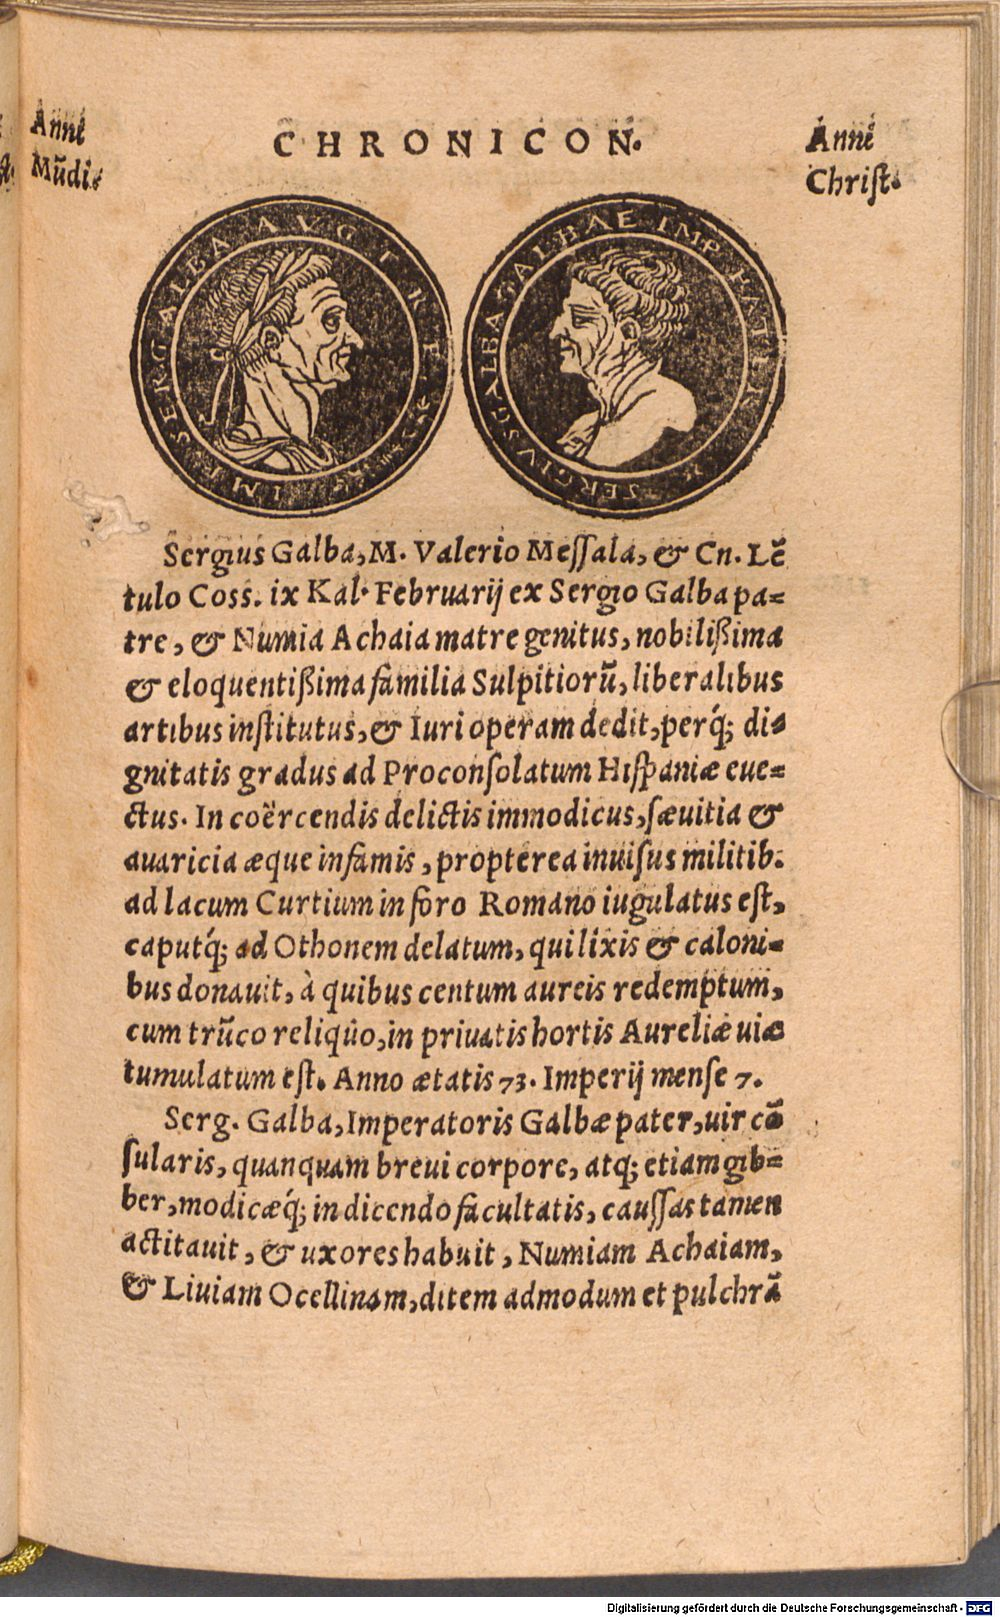 Anni
Mũdi.
CHRONICON.
Anni
Christ.
IMP. SER GALBA AVG T R P
SERGIVS GALBA GALBAE IMP PATER
Sergius Galba, M. Valerio Messala, & Cn. Lẽ
tulo Coss. ix Kal. Februarij ex Sergio Galba pa=
tre, & Numia Achaia matre genitus, nobilißima
& eloquentißima familia Sulpitiorũ, liberalibus
artibus institutus, & Iuri operam dedit, perq́; di=
gnitatis gradus ad Proconsolatum Hispaniæ eue=
ctus. In coërcendis delictis immodicus, sæuitia &
auaricia æque infamis, propterea inuisus militib.
ad lacum Curtium in foro Romano iugulatus est,
caputq́; ad Othonem delatum, qui lixis & caloni=
bus donauit, à quibus centum aureis redemptum,
cum trũco reliquo, in priuatis hortis Aureliæ uiæ
tumulatum est. Anno ætatis 73. Imperij mense 7.
Serg. Galba, Imperatoris Galbæ pater, uir cõ
sularis, quanquam breui corpore, atq; etiam gib=
ber, modicæq́; in dicendo facultatis, caussas tamen
actitauit, & uxores habuit, Numiam Achaiam,
& Liuiam Ocellinam, ditem admodum et pulchrã
Digitalisierung gefördert durch die Deutsche Forschungsgemeinschaft - DFG